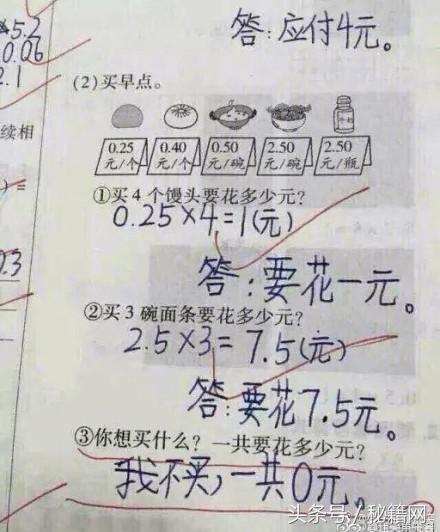 ×5.2
0.06
2.1
答:应付4元。
(2)买早点。
续相
0.25 元/个 0.40 元/个 0.50 元/碗 2.50 元/碗 2.50 元/瓶
①买4个馒头要花多少元?
0.25×4=1(元)
0.3
答:要花一元。
②买3碗面条要花多少元?
2.5×3=7.5(元)
答:要花7.5元。
③你想买什么?一共要花多少元?
我不买,一共0元。
头条号/秘籍网